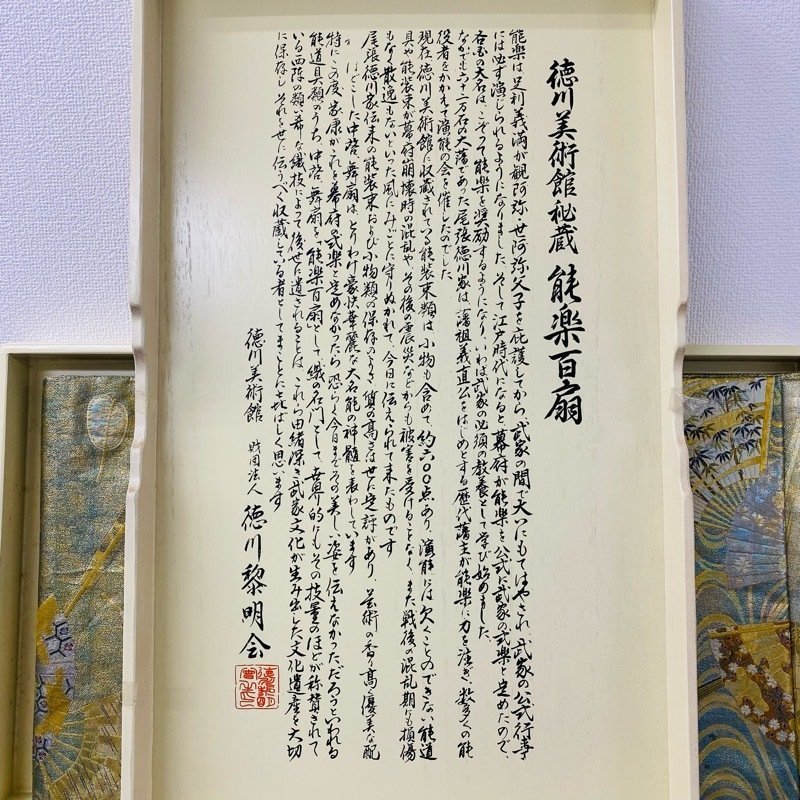 徳川美術館秘蔵 能楽百扇
能楽は足利義満が観阿弥・世阿弥父子を庇護してから、武家の間で大いにもてはやされ、武家の公式行事
には必ず演じられるようになりました。そして江戸時代になると幕府が能楽を公式に武家の式楽と定めたので、
各国の大名は、こぞって能楽を奨励するようになり、いわば武家の必須の教養として学び始めました。
なかでも六十二万石の大藩であった尾張徳川家は、藩祖義直公をはじめとする歴代藩主が能楽に力を注ぎ、数多くの能
役者をかかえて演能の会を催したのでした。
現在、徳川美術館に収蔵されている能装束類は、小物も含めて、約六〇〇点あり、演能には欠くことのできない能道
具や能装束が幕府崩壊時の混乱や、その後の震災などからも被害を受けることなく、また戦後の混乱期にも損傷
もなく散逸もないといった風にみごとに守りぬかれて、今日に伝えられて来たものです。
尾張徳川家伝来の能装束および小物類の保存のよさ、質の高さは世に定評があり、芸術の香り高く優美な配
ほどこした中啓、舞扇は、とりわけ豪快華麗な大名能の神髄を表わしています。
特にこの度、家康がこれを幕府の式楽と定めなかったら、恐らく今日までその美しい姿を伝えなかっただろうといわれる
能道具類のうち、中啓、舞扇を「能楽百扇」として、織の名門として、世界的にもその技量のほどが称賛されて
いる西陣の類い希な織技によって後世に遺されることは、これら由緒深き武家文化が生み出した文化遺産を大切
に保存し、それを世に伝うべく収蔵している者としてまことに喜ばしく思います。
徳川美術館 財団法人 徳川黎明会